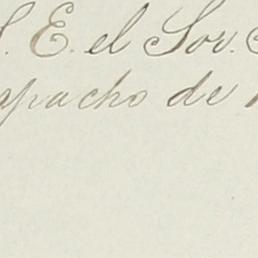 S. E. el Sor.
spacho de